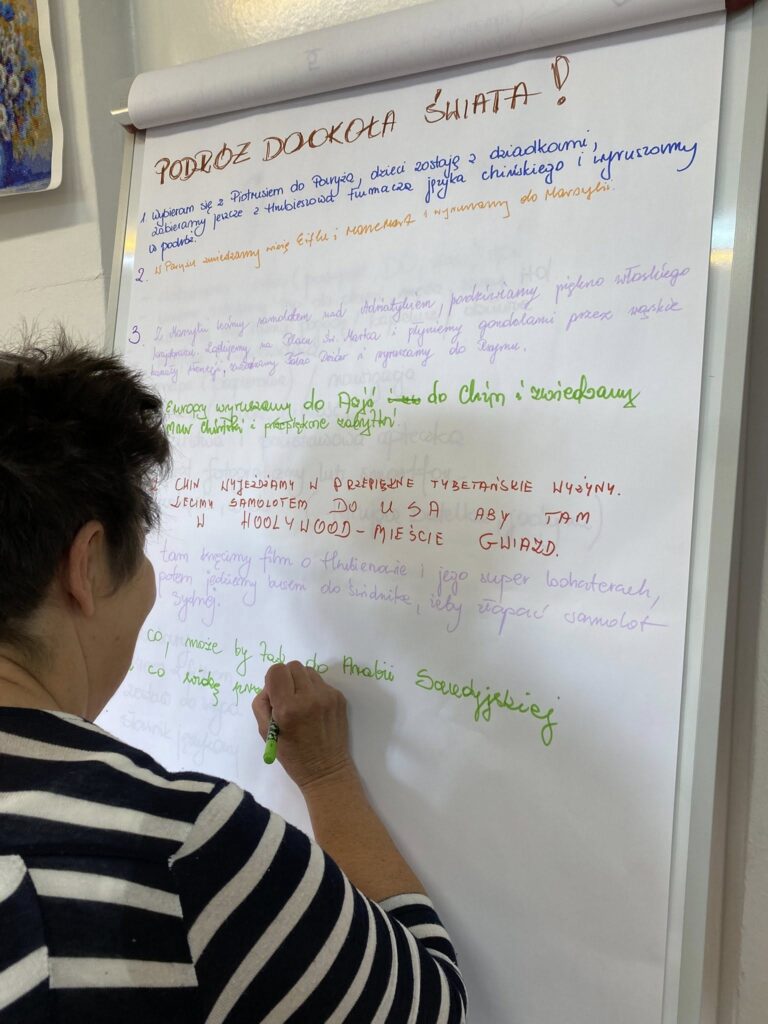 PODRÓŻ DOOKOŁA ŚWIATA!
1. Wybieram się z Piotrusiem do Paryża, dzieci zostają z dziadkami,
zabieramy jeszcze z Hrubieszowa tłumacza języka chińskiego i wyruszamy
w podróż.
2. W Paryżu zwiedzamy wieżę Eifla i i wyruszamy do Marsylii.
3. Z Marsylii lecimy samolotem nad Adriatykiem, podziwiamy piękno włoskiego
lądujemy na Placu Św. Marka i płyniemy gondolami przez wąskie
kanały Wenecji, zwiedzamy Pałac Dożów i wyruszamy do Rzymu.
Europy wyruszamy do Azji do Chin i zwiedzamy
mur chiński i przepiękne zabytki
CHIN WYJEŻDŻAMY W PRZEPIĘKNE TYBETAŃSKIE WYŻYNY.
LECIMY SAMOLOTEM DO USA ABY TAM
W HOOLYWOOD - MIEŚCIE GWIAZD.
tam kręcimy film o i jego super bohaterach,
potem jedziemy busem do żeby złapać samolot
Sydnej.
co, może by tak do Arabii Saudyjskiej
co widzę